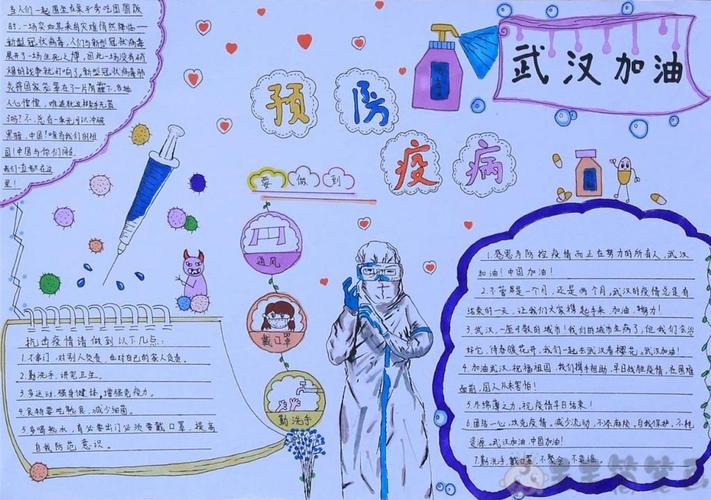 与人们一起围坐在桌子旁吃团圆饭
时,一场突如其来的灾难悄然降临——
新型冠状病毒,人们与新型冠状病毒
展开了一场生死之博,因此一场没有硝
烟的战争就打响了,新型冠状病毒肺
炎
人心惶惶,
吗?不,总有一束光可以冲破
黑暗,中国!
国!中国与你们同在,
我们一直都在这
里!
武汉加油
预防
疫病
要做到
通风
戴口罩
勤洗手
抗击疫情请做到以下几点:
1.不串门,对别人负责,也对自己的家人负责。
2.勤洗手,讲究卫生。
3.多运动,强身健体,增强免疫力。
4.食物要吃熟食,减少细菌。
5.多喝热水,有必要出门必须要戴口罩,提高
自我防范意识。
1.感恩为防控疫情而正在努力的所有人,武汉
加油!中国加油!
2.不管是一个月,还是两个月,武汉的疫情总是有
结束的一天,让我们大家撑起手来,加油,努力!
3.武汉,一座英雄的城市!我们的城市生病了,但我们会治
好它,待春暖花开,我们一起去武汉看樱花。武汉加油!
4.加油武汉,祝福祖国,我们携手相助,早日战胜疫情,在困难
面前,国人从未害怕!
5.尽绵薄之力,抗疫情早日结束!
6.团结一心,攻克疫情,减少流动,不添麻烦,自我保护,不耗
资源。武汉加油,中国加油!
7.勤洗手,戴口罩,不聚会,不